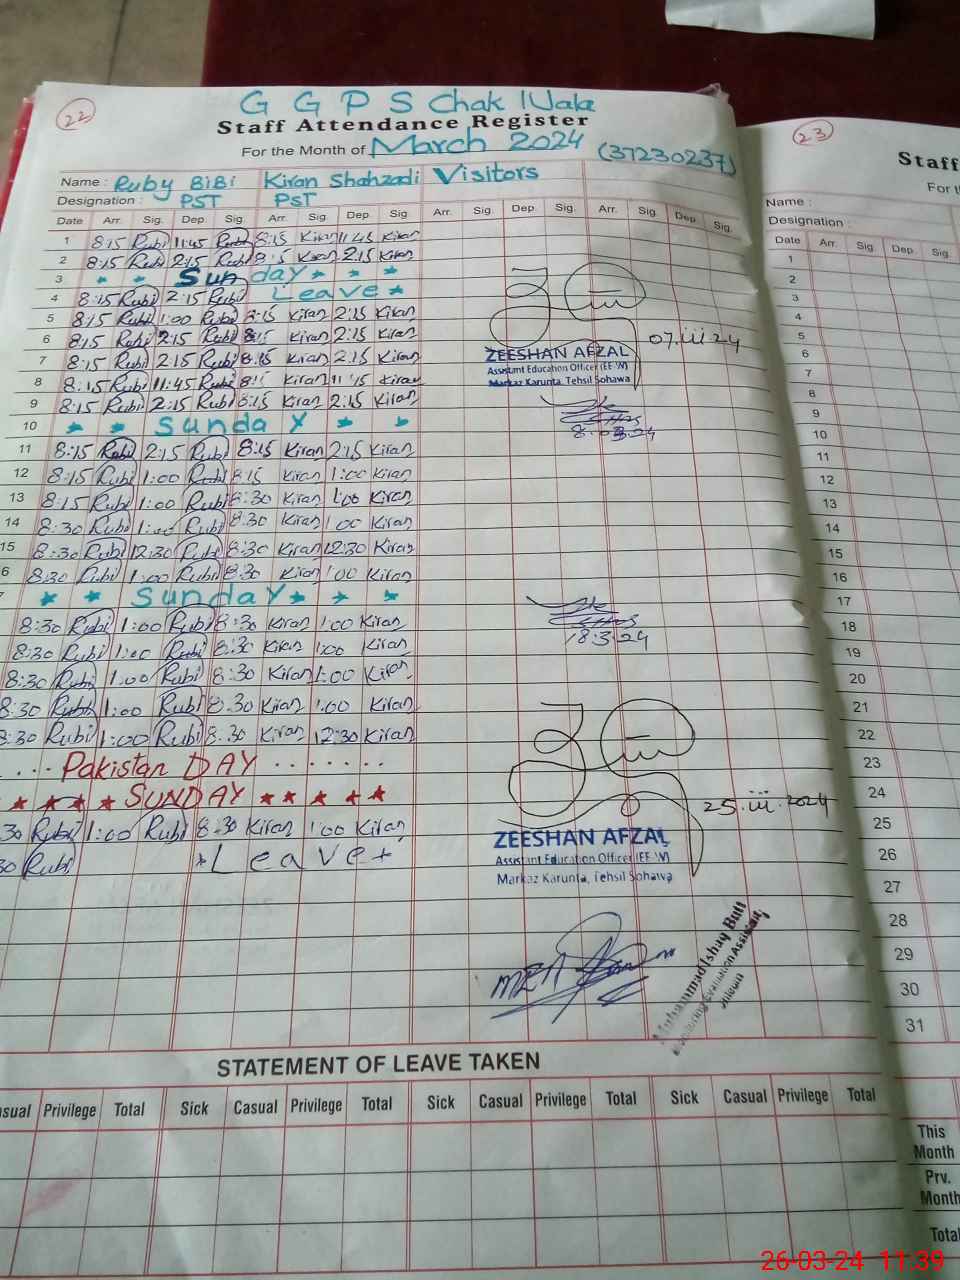 22
G G P S Chak Wala
Staff Attendance Register
For the Month of March 2024 (37230237)
Name : Ruby BiBi Kiran Shahzadi Visitors
Designation : PST PST
Date Arr. Sig. Dep. Sig. Arr. Sig. Dep. Sig Arr. Sig. Dep. Sig. Arr. Sig. Dep. Sig.
1 8:15 Rubi 11:45 Rubi 8:15 Kiran 11:45 Kiran
2 8:15 Rubi 2:15 Rubi 8:15 Kiran 2:15 Kiran
3 * * Sunday * * *
4 8:15 Rubi 2:15 Rubi Leave *
5 8:15 Rubi 1:00 Rubi 8:15 Kiran 2:15 Kiran
6 8:15 Rubi 2:15 Rubi 8:15 Kiran 2:15 Kiran
7 8:15 Rubi 2:15 Rubi 8:15 Kiran 2:15 Kiran
8 8:15 Rubi 11:45 Rubi 8:15 Kiran 11:45 Kiran
9 8:15 Rubi 2:15 Rubi 8:15 Kiran 2:15 Kiran
10 * * Sunday * * *
11 8:15 Rubi 2:15 Rubi 8:15 Kiran 2:15 Kiran
12 8:15 Rubi 1:00 Rubi 8:15 Kiran 1:00 Kiran
13 8:15 Rubi 1:00 Rubi 8:30 Kiran 1:00 Kiran
14 8:30 Rubi 1:00 Rubi 8:30 Kiran 1:00 Kiran
15 8:30 Rubi 12:30 Rubi 8:30 Kiran 12:30 Kiran
6 8:30 Rubi 1:00 Rubi 8:30 Kiran 1:00 Kiran
* * Sunday * * *
8:30 Rubi 1:00 Rubi 8:30 Kiran 1:00 Kiran
8:30 Rubi 1:00 Rubi 8:30 Kiran 1:00 Kiran
8:30 Rubi 1:00 Rubi 8:30 Kiran 1:00 Kiran
8:30 Rubi 1:00 Rubi 8:30 Kiran 1:00 Kiran
8:30 Rubi 1:00 Rubi 8:30 Kiran 12:30 Kiran
.... Pakistan DAY .......
* * * * SUNDAY * * * * *
30 Rubi 1:00 Rubi 8:30 Kiran 1:00 Kiran
30 Rubi *Leave*
07.iii.24
ZEESHAN AFZAL
Assistant Education Officer (EE-W)
Markaz Karunta, Tehsil Sohawa
8.03.24
18.3.24
25.iii.2024
ZEESHAN AFZAL
Assistant Education Officer (EE-W)
Markaz Karunta, Tehsil Sohawa
MEA
Muhammad Ishaq Butt
Monitoring Evaluation Assistant
Jhelum
STATEMENT OF LEAVE TAKEN
asual Privilege Total Sick Casual Privilege Total Sick Casual Privilege Total Sick Casual Privilege Total
23
Staff
For t
Name :
Designation :
Date Arr. Sig. Dep. Sig.
1
2
3
4
5
6
7
8
9
10
11
12
13
14
15
16
17
18
19
20
21
22
23
24
25
26
27
28
29
30
31
This
Month
Prv.
Month
Total
26-03-24 11:39